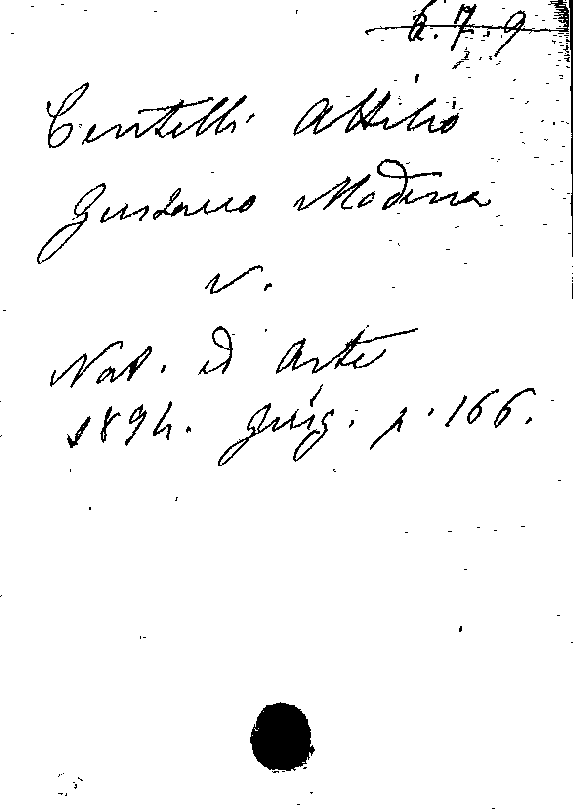 6.7.9
Centelli Attilio
Gustavo Modena
v.
Nat. ed Arte
1894. Giug. p. 166.